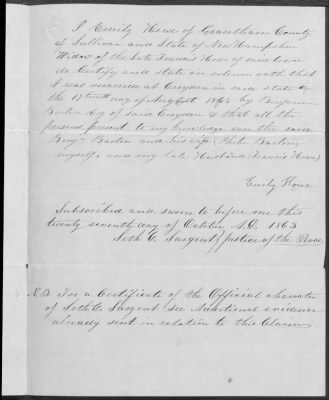 I Emily Howe of Grantham County
of Sullivan and State of New Hampshire
Widow of the late Francis Howe of said town
do Certify and state on solemn oath that
I was married at Croydon in said state on
the 17 day of August 1862 by Benjamin
Barton Esq of said Croydon & that all the
persons present to my knowledge were the said
Benjn Barton and his wife (Phila Barton)
myself and my late Husband Francis Howe)
Emily Howe
Subscribed and sworn to before me this
twenty seventh day of October A.D. 1863
Seth C Sargent Justice of the Peace
N.B For a Certificate of the Official character
of Seth C. Sargent see Additional evidence
already sent in relation to this Claim